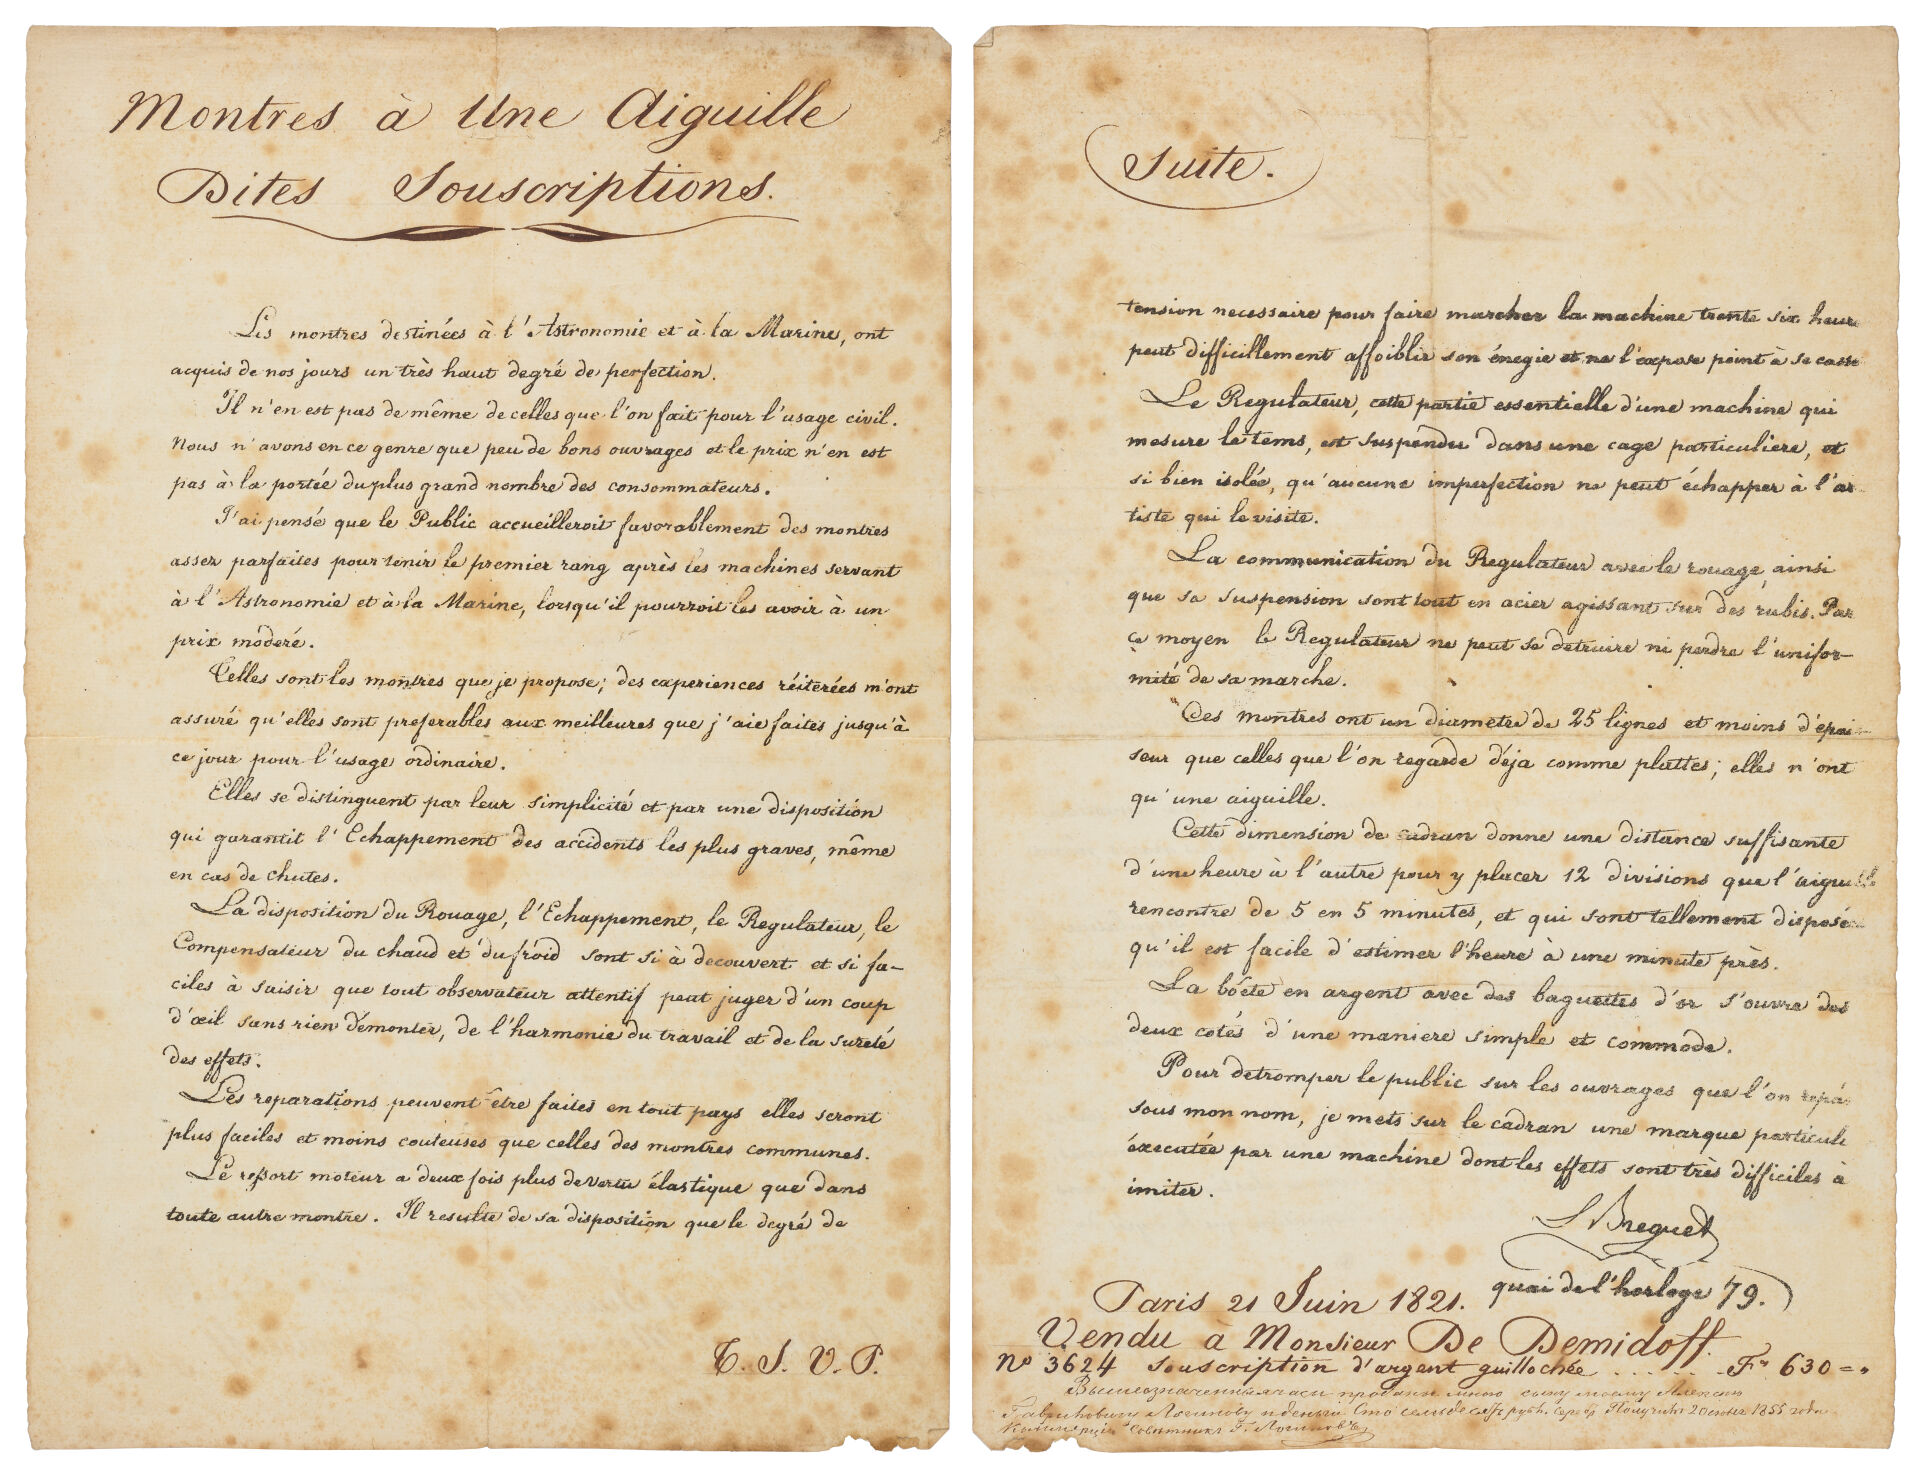 Montres à Une Aiguille
Dites Souscriptions.
Les montres destinées à l'Astronomie et à la Marine, ont
acquis de nos jours un très haut degré de perfection.
Il n'en est pas de même de celles que l'on fait pour l'usage civil.
Nous n'avons en ce genre que peu de bons ouvrages et le prix n'en est
pas à la portée du plus grand nombre des consommateurs.
J'ai pensé que le Public accueilleroit favorablement des montres
assez parfaites pour tenir le premier rang après les machines servant
à l'Astronomie et à la Marine, lorsqu'il pourroit les avoir à un
prix modéré.
Telles sont les montres que je propose; des experiences réiterées m'ont
assuré qu'elles sont preferables aux meilleures que j'aie faites jusqu'à
ce jour pour l'usage ordinaire.
Elles se distinguent par leur simplicité et par une disposition
qui garantit l'Echappement des accidents les plus graves, même
en cas de chutes.
La disposition du Rouage, l'Echappement, le Regulateur, le
Compensateur du chaud et du froid sont si à decouvert et si fa-
ciles à saisir que tout observateur attentif peut juger d'un coup
d'œil sans rien démonter, de l'harmonie du travail et de la sureté
des effets.
Les reparations peuvent être faites en tout pays elles seront
plus faciles et moins couteuses que celles des montres communes.
Le ressort moteur a deux fois plus de vertu élastique que dans
toute autre montre. Il resulte de sa disposition que le degré de
T. S. V. P.
Suite.
tension necessaire pour faire marcher la machine trente six heure
peut difficillement affoiblir son énegie et ne l'expose point à se casse
Le Regulateur, cette partie essentielle d'une machine qui
mesure le tems, est suspendu dans une cage particuliere, et
si bien isolée, qu'aucune imperfection ne peut échapper à l'ar
tiste qui le visite.
La communication du Regulateur avec le rouage, ainsi
que sa suspension sont tout en acier agissant sur des rubis. Par
ce moyen le Regulateur ne peut se detruire ni perdre l'unifor-
mité de sa marche.
Ces montres ont un diametre de 25 lignes et moins d'epai-
seur que celles que l'on regarde déja comme plattes; elles n'ont
qu'une aiguille.
Cette dimension de cadran donne une distance suffisante
d'une heure à l'autre pour y placer 12 divisions que l'aiguille
rencontre de 5 en 5 minutes, et qui sont tellement disposé
qu'il est facile d'estimer l'heure à une minute près.
La boéte en argent avec des baguettes d'or s'ouvre des
deux cotés d'une maniere simple et commode.
Pour detromper le public sur les ouvrages que l'on repá
sous mon nom, je mets sur le cadran une marque particuli
éxecutée par une machine dont les effets sont très difficiles à
imiter.
Breguet
quai de l'horloge 79.
Paris 21 Juin 1821.
Vendu à Monsieur De Demidoff.
No 3624 souscription d'argent guillochée . . . . . . Fs 630 = "
Вышеозначенные часы проданы мною сыну моему Алексею
Гавриловичу Логинову и деньги Сто семьдесятъ рубл. серебр Получилъ 20 1855 года
Совѣтникъ Г. Логиновъ